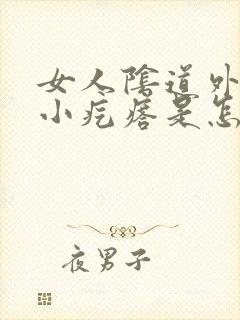 女人陰道外
小疙瘩是怎
夜男子